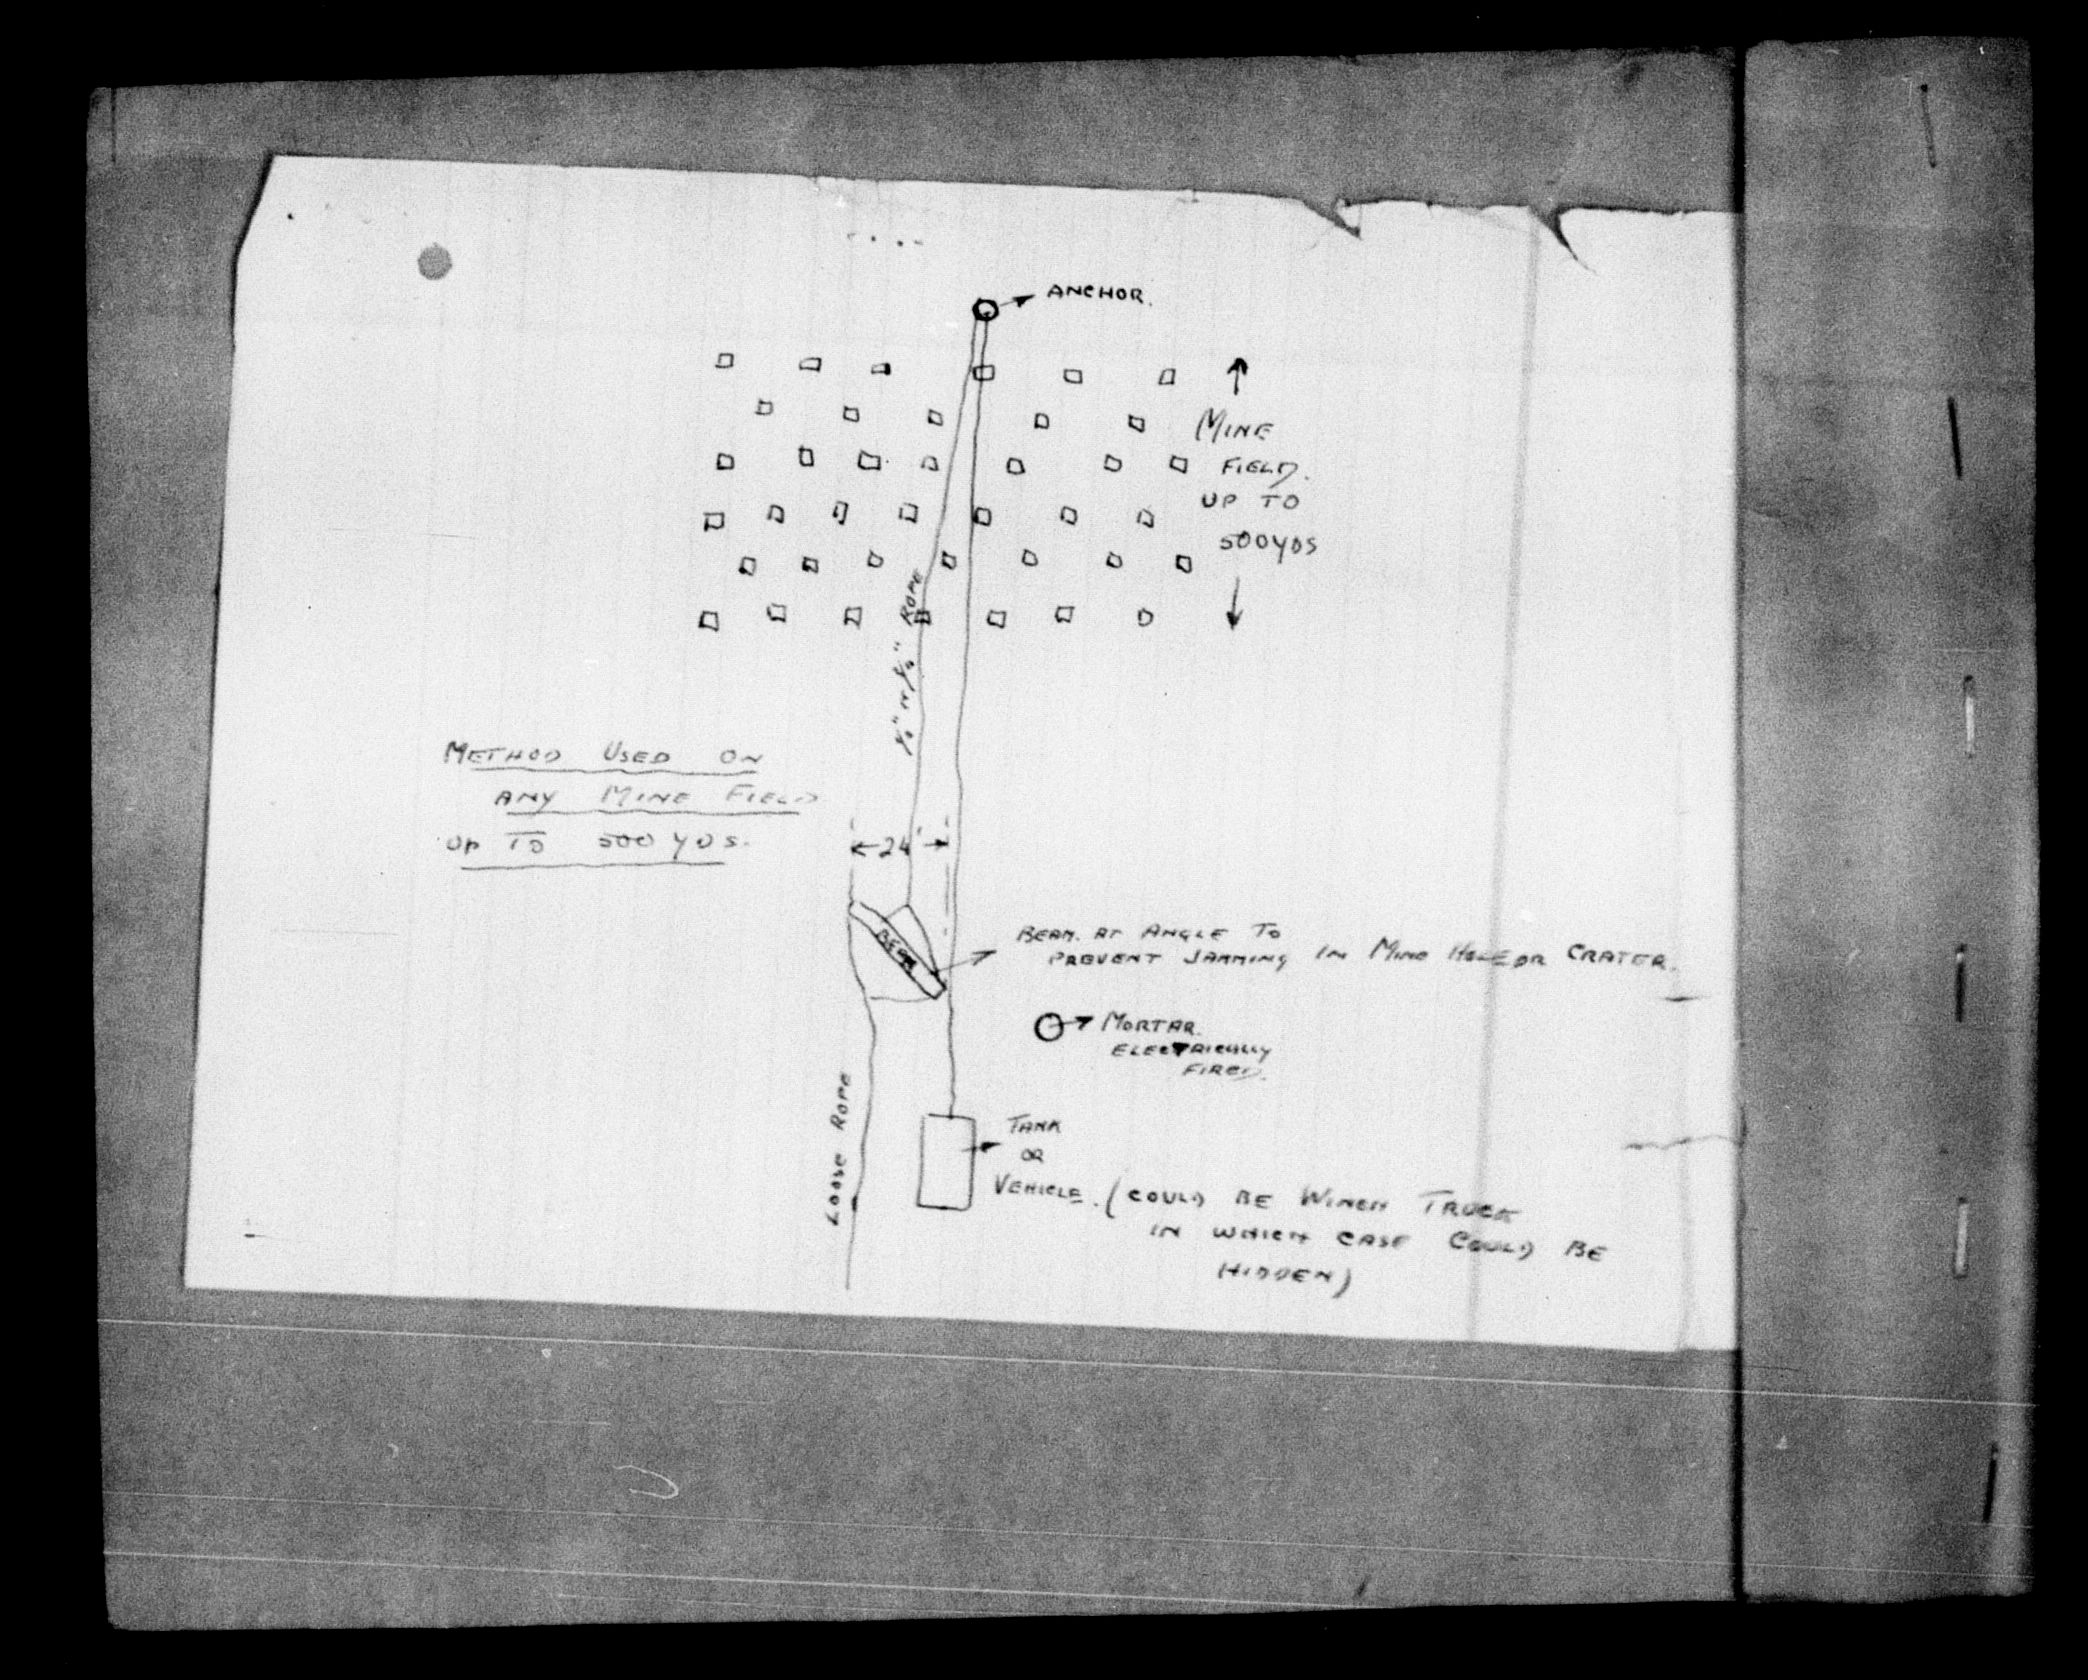 ANCHOR.
MINE
FIELD.
UP TO
500 YDS
ROPE
METHOD USED ON
ANY MINE FIELD
UP TO 500 YDS.
24'
BEAM
BEAM. AT ANGLE TO
PREVENT JAMMING IN MINE HOLE OR CRATER.
MORTAR.
ELECTRICALLY
FIRED.
LOOSE ROPE
TANK
OR
VEHICLE. (COULD BE WINCH TRUCK
IN WHICH CASE COULD BE
HIDDEN)